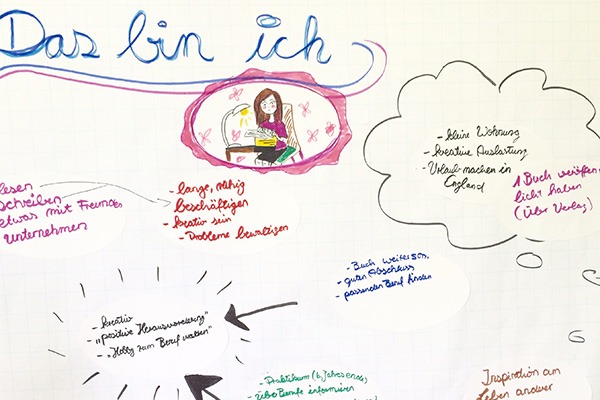 Das bin ich
- kleine Wohnung
- kreative Auslastung
- Urlaub machen in
England
1 Buch veröffent-
licht haben
(Über Verlag)
lesen
schreiben
etwas mit Freunden
unternehmen
- lange, ruhig
beschäftigen
- kreativ sein
- Probleme bewältigen
- Buch
- guten Abschluss
- passenden Beruf finden
- kreativ
- "positive Herausforderung"
- "Hobby zum Beruf machen"
- Praktikum (b. Jahresende)
- über Berufe informieren
Inspiration am
Leben anderer